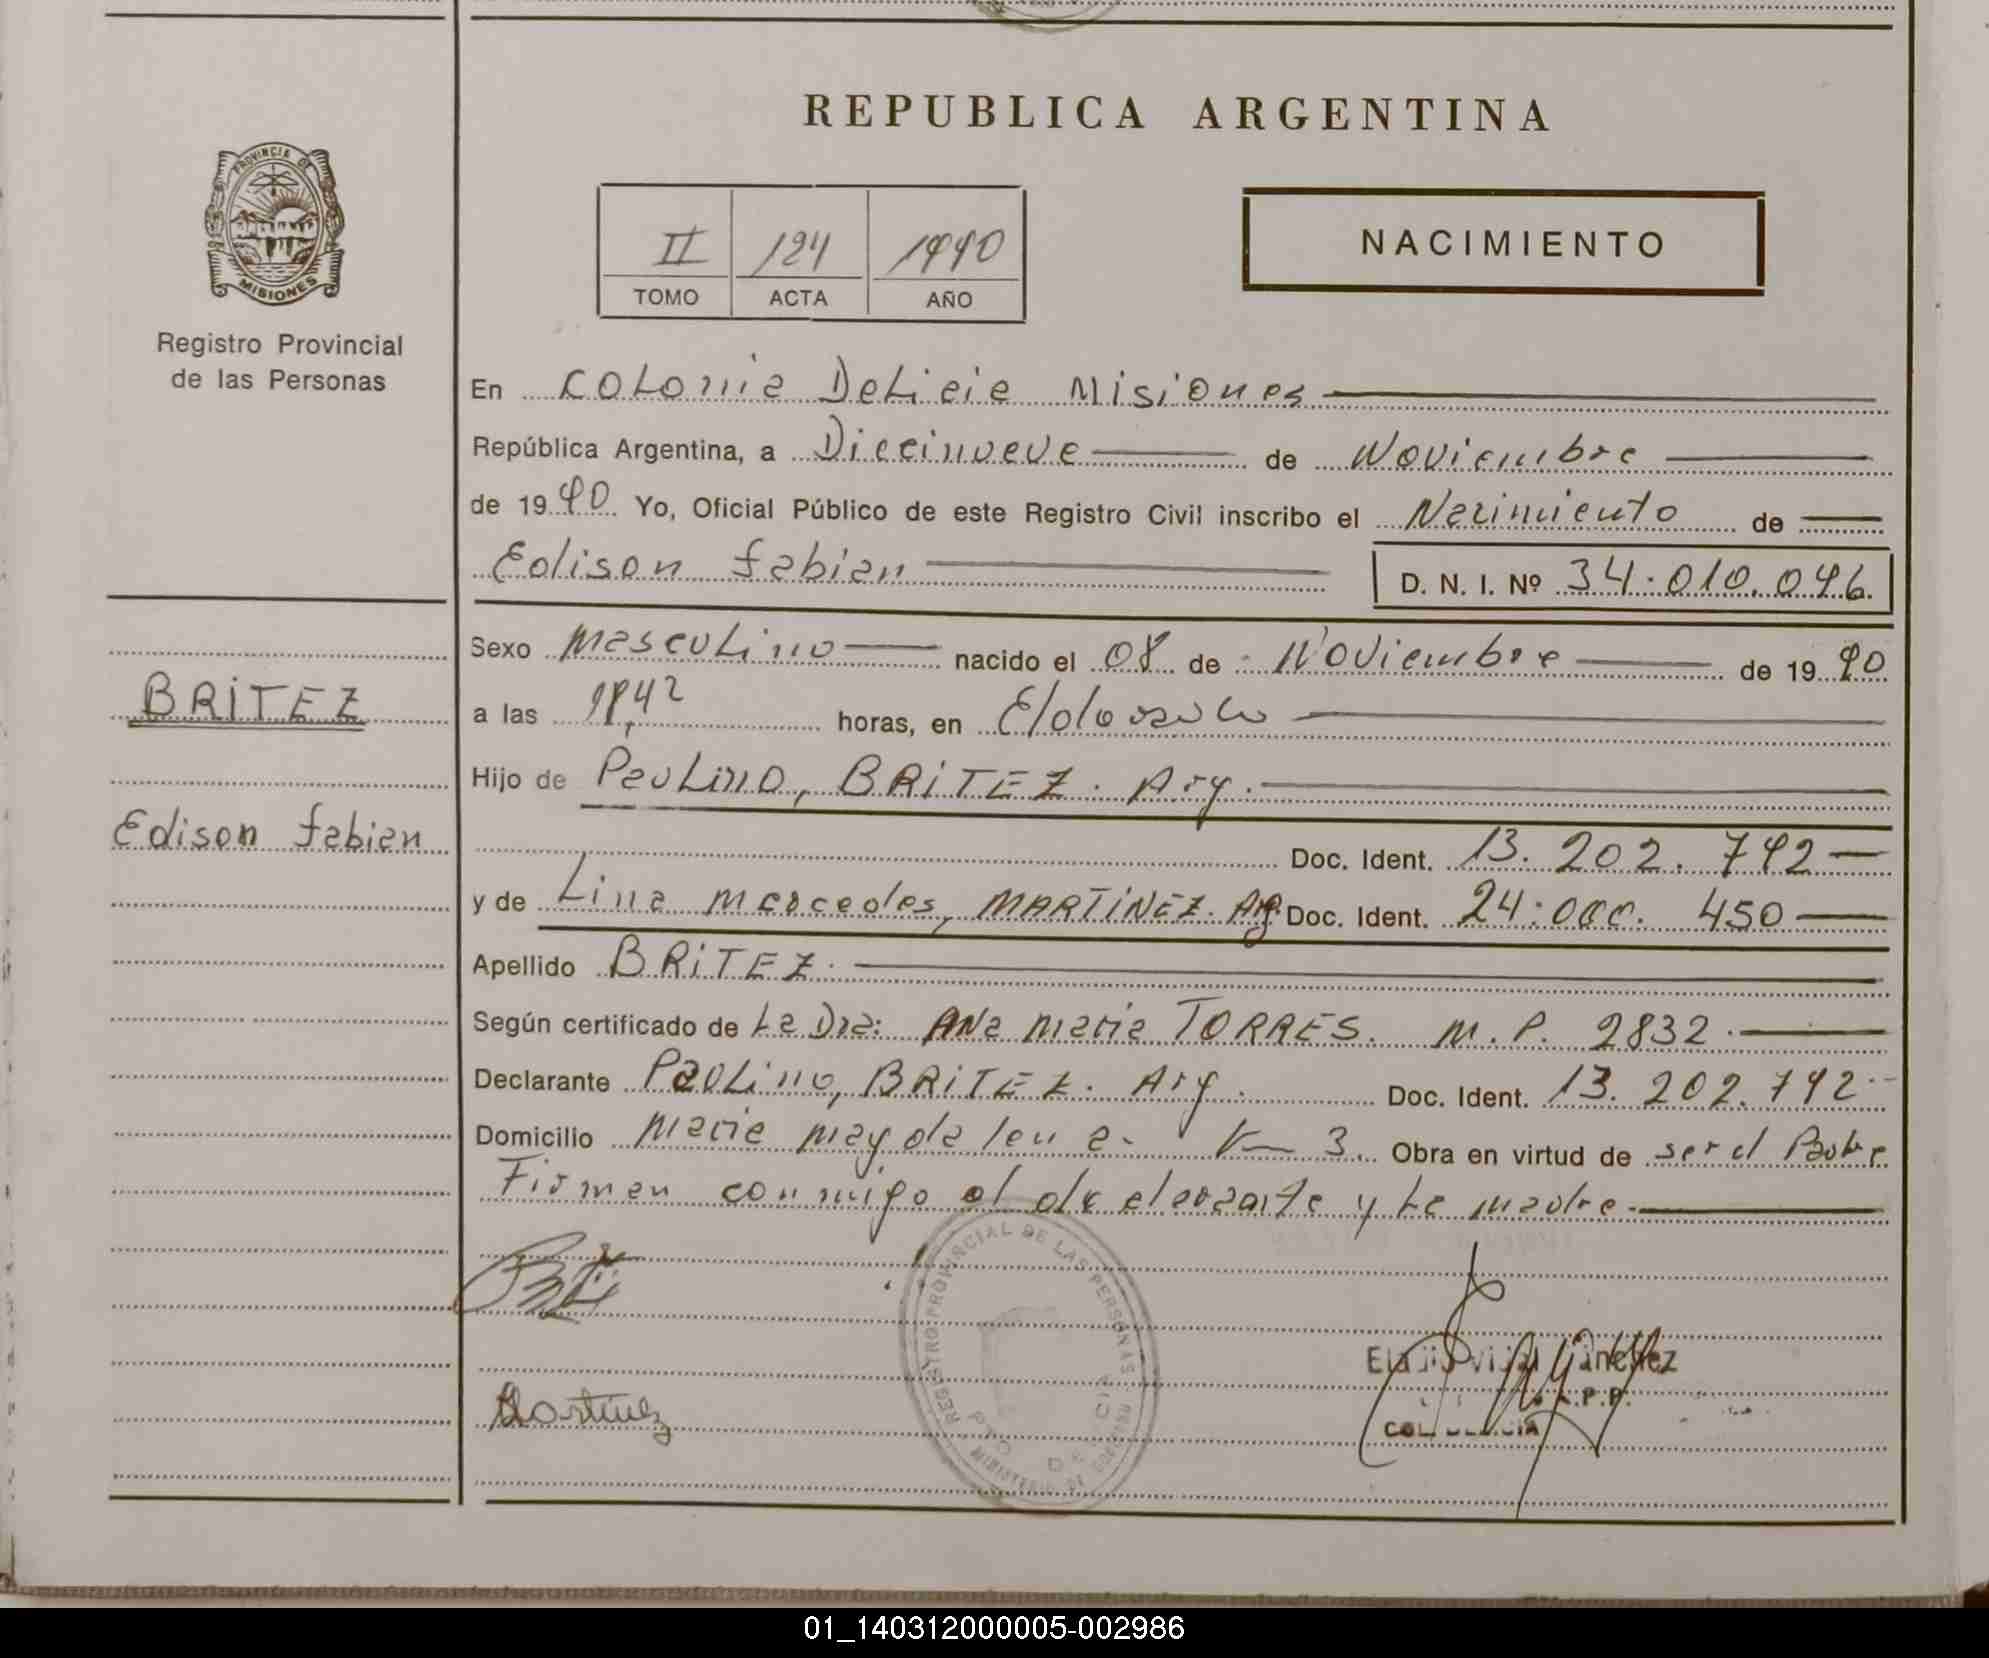 REPUBLICA ARGENTINA
PROVINCIA DE
MISIONES
Registro Provincial
de las Personas
II 124 1990
TOMO ACTA AÑO
NACIMIENTO
En Colonia Delicia Misiones
República Argentina, a Diecinueve de Noviembre
de 1990 Yo, Oficial Público de este Registro Civil inscribo el Nacimiento de
Edison fabian D. N. I. Nº 34.010.096.
Sexo masculino nacido el 08 de Noviembre de 1990
BRITEZ
a las 18,42 horas, en Eldorado
Hijo de Paulino, BRITEZ. Arg.
Edison fabian
Doc. Ident. 13.202.792
y de Lina mercedes, MARTINEZ. Arg. Doc. Ident. 24.000.450
Apellido BRITEZ.
Según certificado de La Dra: ANa maria TORRES. M.P. 2832.
Declarante Paulino, BRITEZ. Arg. Doc. Ident. 13.202.792
Domicilio maria magdalena. Km 3. Obra en virtud de ser el Padre
Firman conmigo el declarante y La madre.
REGISTRO PROVINCIAL DE LAS PERSONAS
MINISTERIO DE GOBIERNO
Martinez
01_140312000005-002986